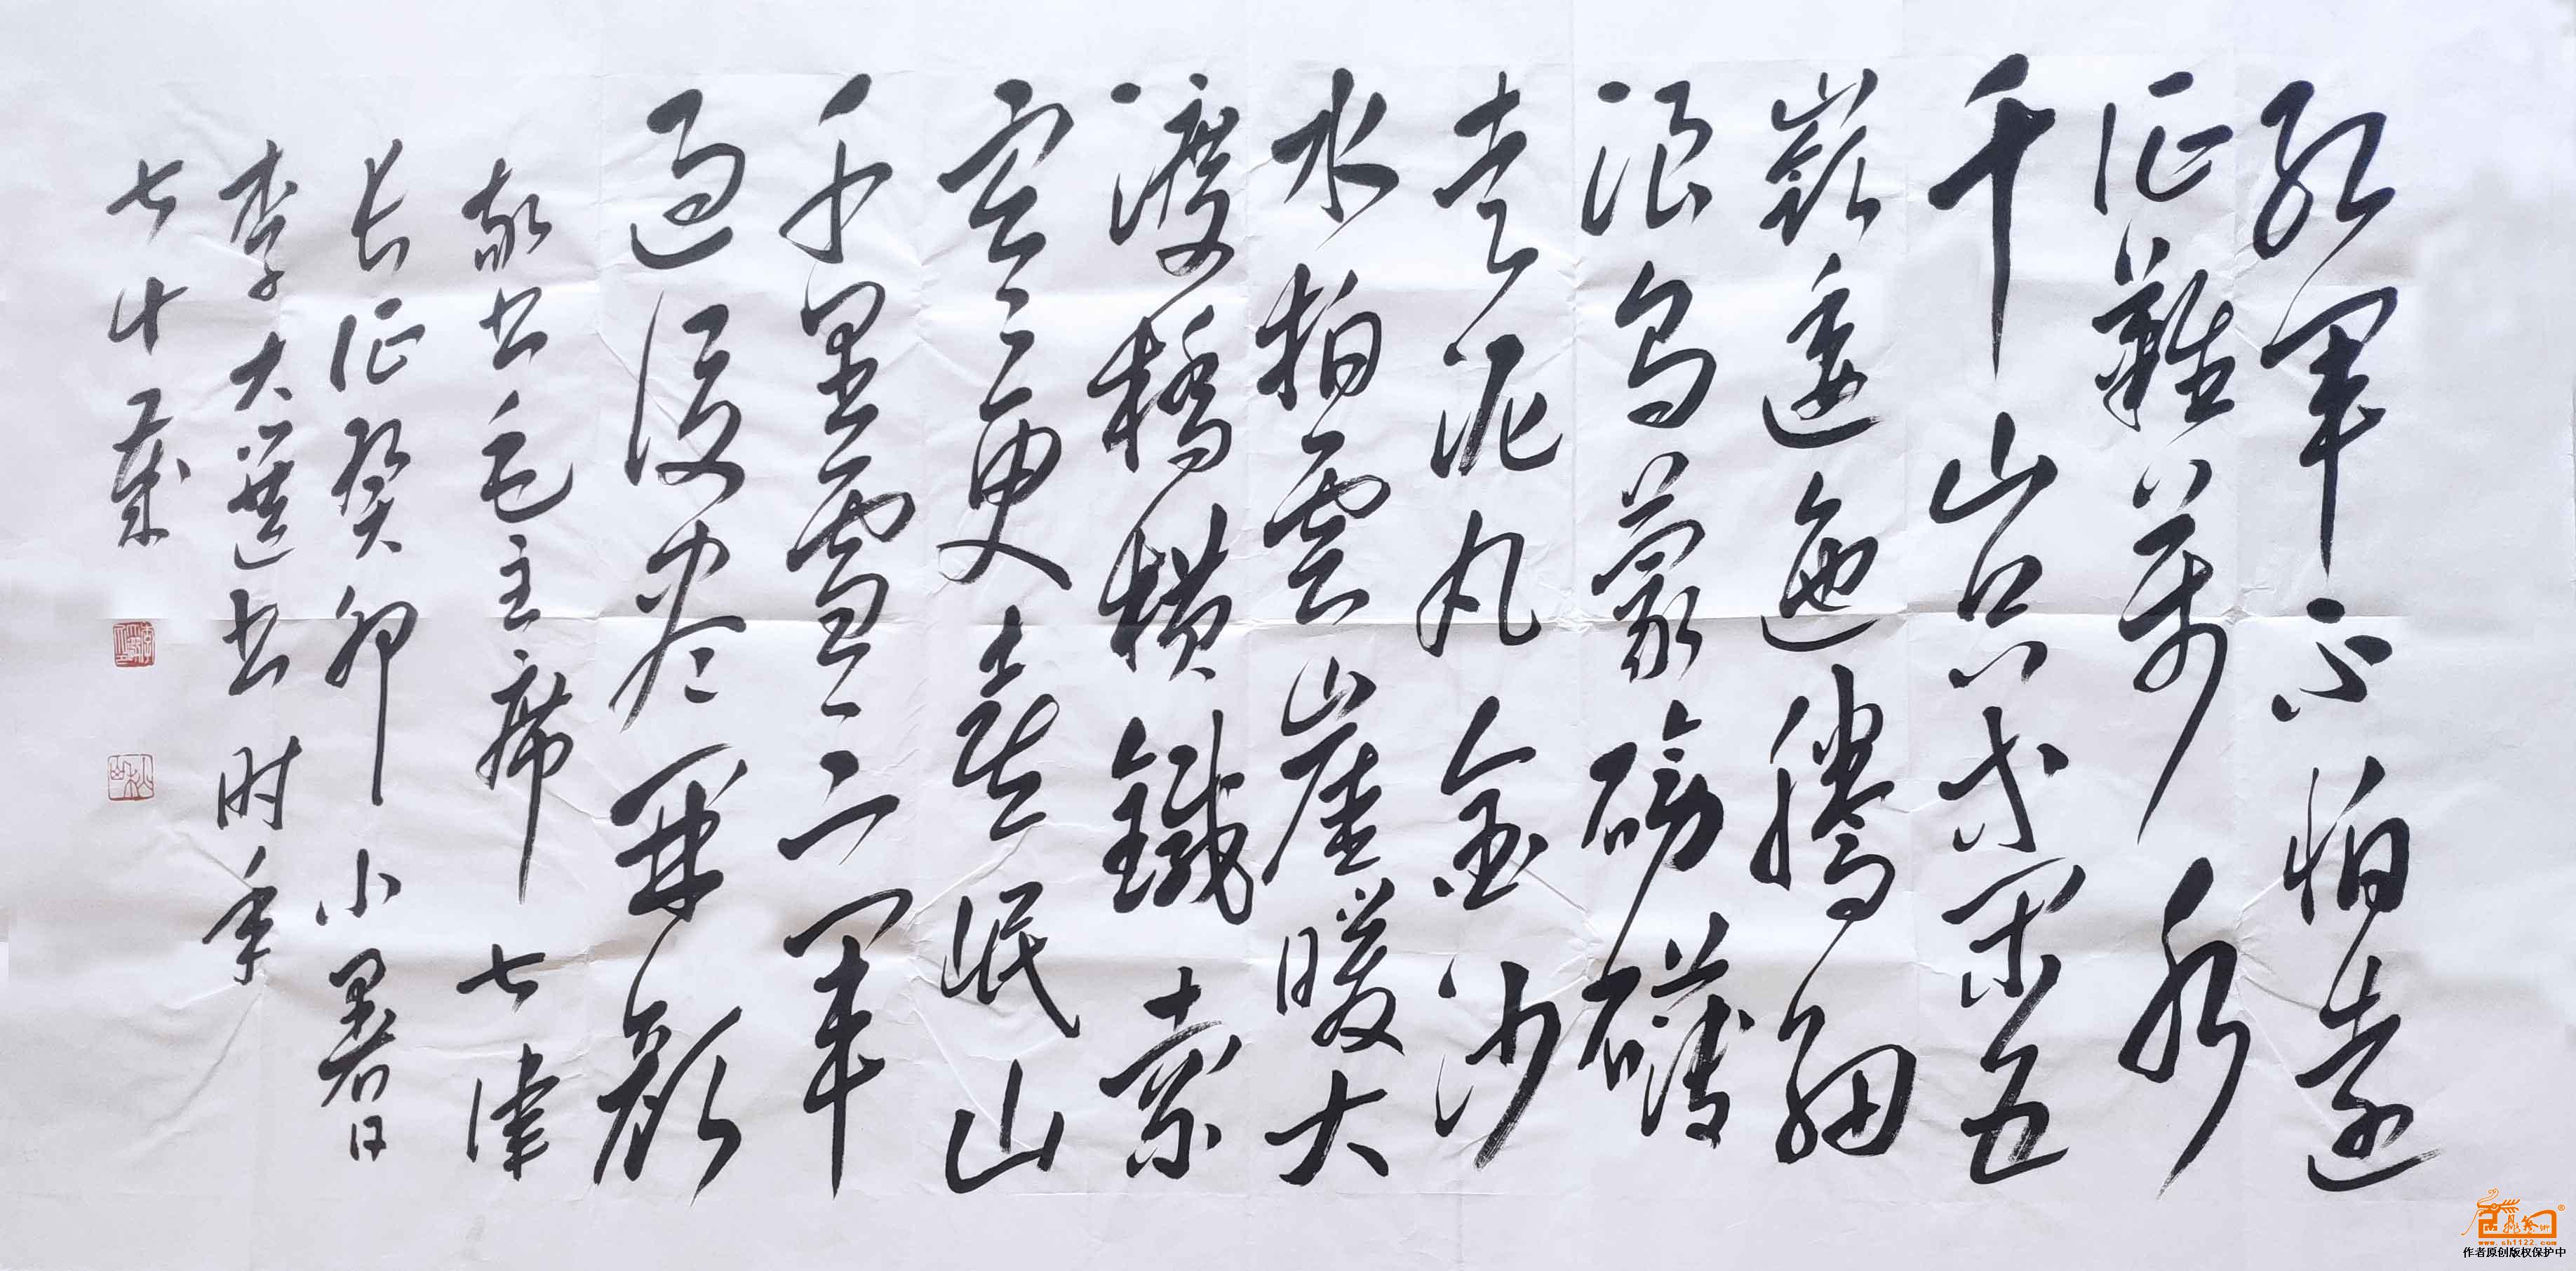 红军不怕遠
征難萬水
千山只等閑五
嶺逶迤騰細
浪烏蒙磅礴
走泥丸金沙
水拍雲崖暖大
渡橋橫鐵索
寒更喜岷山
千里雪三軍
過後盡開顏
敬书毛主席七律
长征癸卯小暑日
李大運书时年
七十歲
www.sh1122.com
作者原创版权保护中